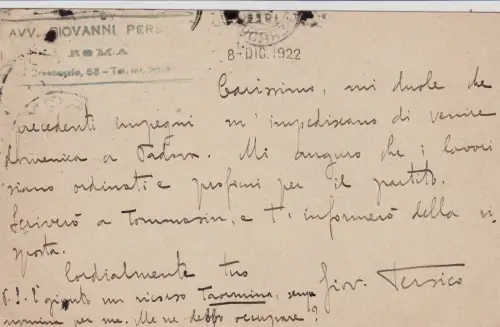 AVV. GIOVANNI PERS
ROMA
Crescenzio, 58 - Tel. int.
8-DIC.1922
Carissimo, mi duole che
precedenti impegni m'impediscano di venire
domenica a Padova. Mi auguro che i lavori
siano ordinati e proficui per il partito.
Scriverò a Tommasin, e t'informerò della ri-
sposta.
Cordialmente tuo
Giov. Persico
P.S. È giunto un ricorso Taormina, senza
nomina per me. Me ne debbo occupare?